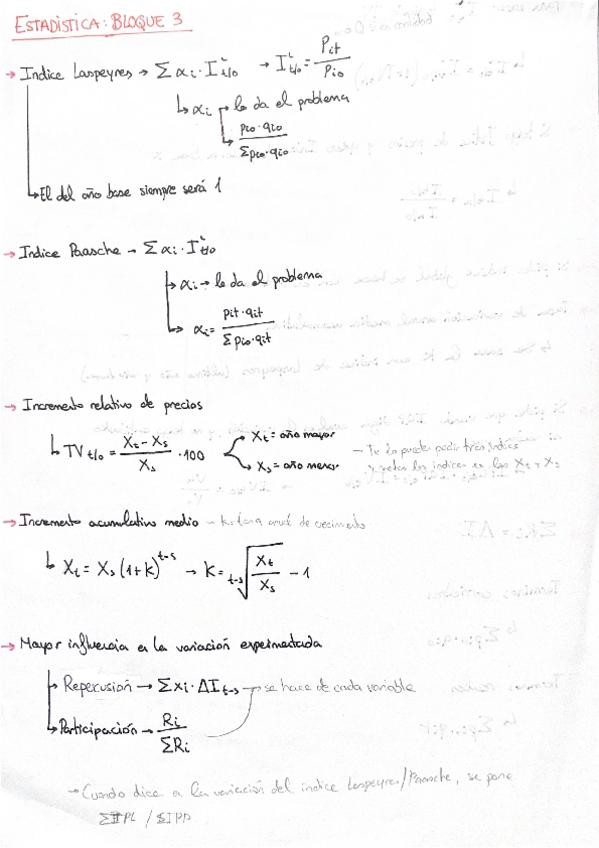 ESTADÍSTICA: BLOQUE 3
→ Indice Laspeyres → Σ αi · I^i t/o → I^i t/o = Pit / Pio
↳ αi → lo da el problema
↳ pio · qio / Σpio · qio
↳ El del año base siempre será 1
→ Indice Paasche → Σ αi · I^i t/o
↳ αi → lo da el problema
↳ αi = pit · qit / Σ pio · qit
→ Incremento relativo de precios
↳ TV t/o = Xt - Xs / Xs · 100
Xt = año mayor
Xs = año menor
- Te lo puede pedir
los indices
→ Incremento acumulativo medio - K: tasa anual de crecimiento
↳ Xt = Xs (1+k)^t-s → K = t-s√ Xt / Xs - 1
→ Mayor influencia en la variación experimentada
↳ Repercusión → Σxi · ΔI t-s → se hace de cada variable
↳ Participación → Ri / ΣRi
→ Cuando dice a la variación del indice Laspeyres/Paasche, se pone